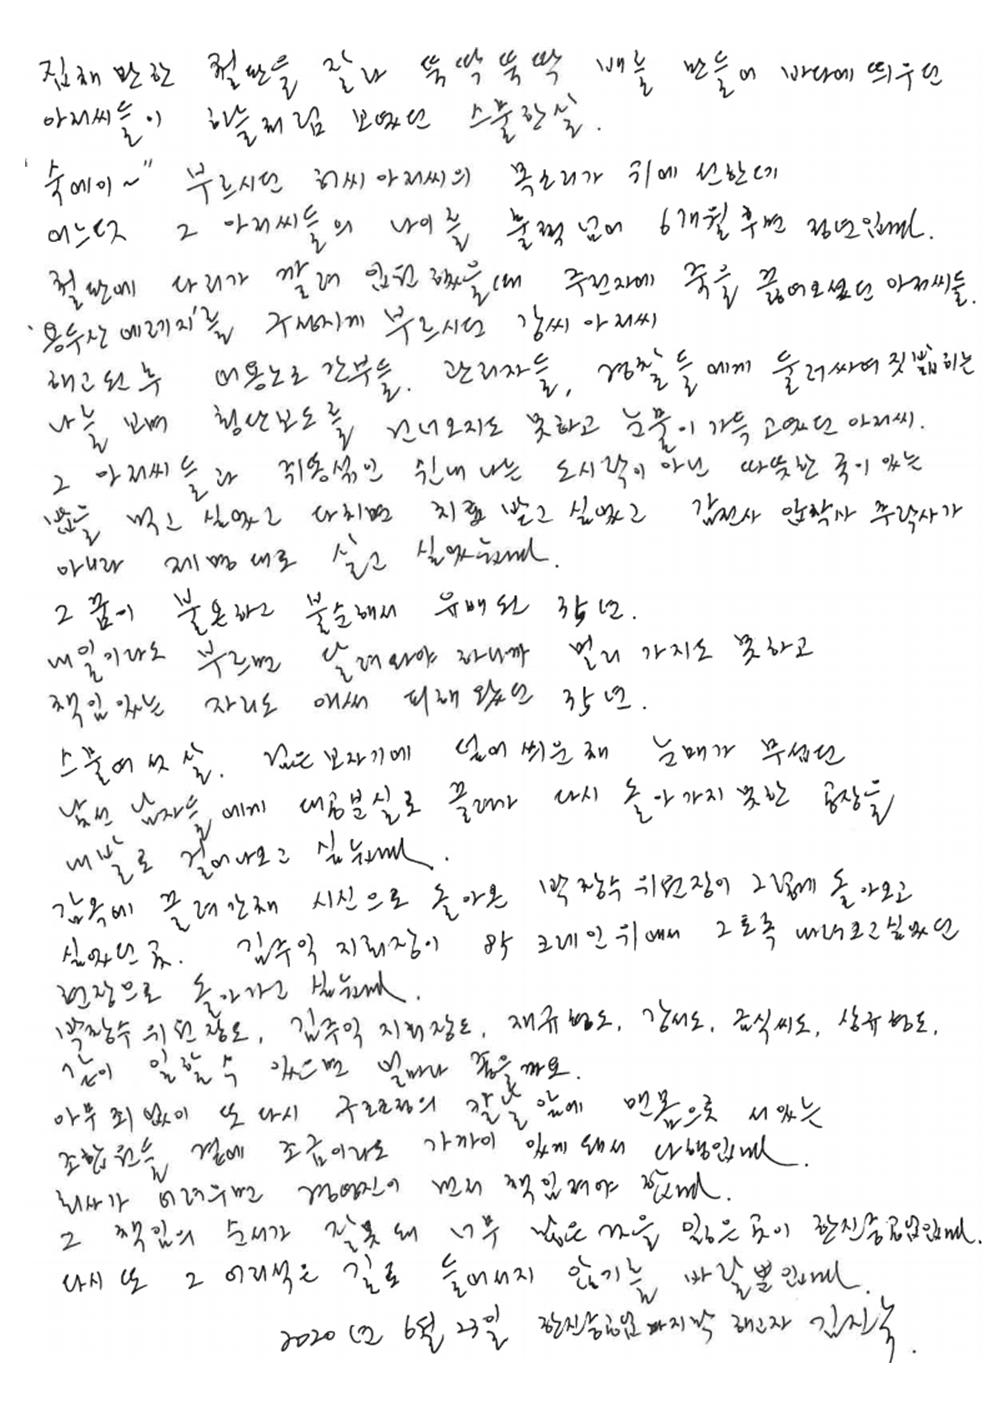 집채만한 철판을 잘라 뚝딱뚝딱 배를 만들어 바다에 띄우던
아저씨들이 하늘처럼 보였던 스물한살.
"숙에이~" 부르시던 허씨 아저씨의 목소리가 귀에 선한데
어느덧 그 아저씨들의 나이를 훌쩍 넘어 6개월 후면 정년입니다.
철판에 다리가 깔려 입원했을때 주전자에 죽을 끓여오셨던 아저씨들.
'용두산 에레지'를 구성지게 부르시던 강씨 아저씨
해고된 후 어용노조 간부들. 관리자들, 경찰들에게 둘러싸여 짓밟히는
나를 보며 횡단보도를 건너오지도 못하고 눈물이 가득 고였던 아저씨.
그 아저씨들과 쥐똥섞인 쉰내 나는 도시락이 아닌 따뜻한 국이 있는
밥을 먹고 싶었고 다치면 치료 받고 싶었고 감전사 압착사 추락사가
아니라 제 명대로 살고 싶었습니다.
그 꿈이 불온하고 불순해서 유배된 35년.
내일이라도 부르면 달려와야 하니까 멀리 가지도 못하고
책임있는 자리도 애써 피해 왔던 35년.
스물여섯살. 검은 보자기에 덮어 씌운 채 눈매가 무섭던
낯선 남자들에게 대공분실로 끌려가 다시 돌아가지 못한 공장을
내발로 걸어나오고 싶습니다.
감옥에 끌려간채 시신으로 돌아온 박창수 위원장이 그렇게 돌아오고
싶었던 곳. 김주익 지회장이 85 크레인 위에서 그토록 내려오고 싶었던
현장으로 돌아가고 싶습니다.
박창수 위원장도, 김주익 지회장도, 재규형도, 강서도, 금식씨도, 상규형도,
같이 일할 수 있으면 얼마나 좋을까요.
아무 죄없이 또다시 구조조정의 칼날 앞에 맨몸으로 서있는
조합원들 곁에 조금이라도 가까이 있게 돼서 다행입니다.
회사가 어려우면 경영진이 먼저 책임져야 합니다.
그 책임의 순서가 잘못돼 너무 많은 것을 잃은 곳이 한진중공업입니다.
다시 또 그 어리석은 길로 들어서지 않기를 바랄 뿐입니다.
2020년 6월 23일 한진중공업 마지막 해고자 김진숙.